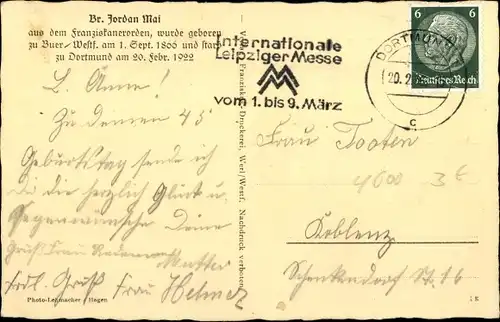 Br. Jordan Mai
aus dem Franziskanerorden, wurde geboren
zu Buer-Westf. am 1. Sept. 1866 und starb
zu Dortmund am 20. Febr. 1922
L. Änne!
Zu deinen 45
Geburtstag sende ich
dir die herzlich Glück u.
Segenswünsche Deine
Mutter
Gruß Frau
frdl. Gruß Frau Helmer
Photo-Leymacher, Hagen
Franziskus Druckerei, Werl/Westf. Nachdruck verboten.
Internationale
Leipziger Messe
MM
vom 1. bis 9. März
DORTMUND
20. 2.
c
6 6
Deutsches Reich
Frau Tooten
4600 3€
Koblenz
Schenkendorf St. 16